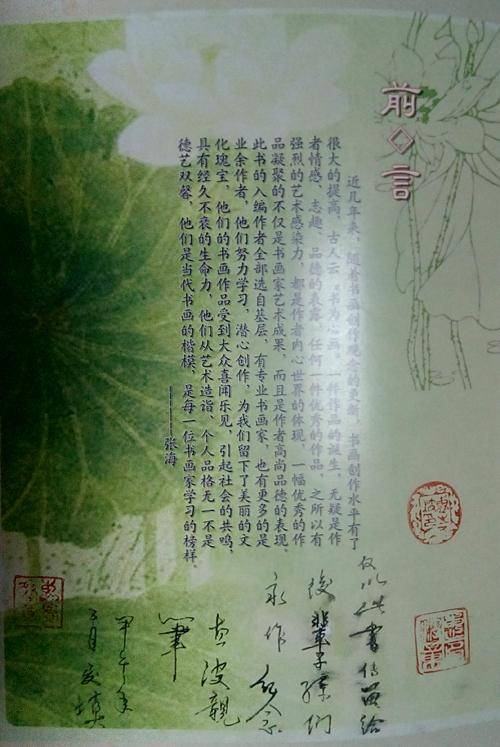 前◇言
近几年来，随着书画创作观念的更新，书画创作水平有了
很大的提高。古人云：书为心画。一件作品的诞生，无疑是作
者情感、志趣、品德的表露。任何一件优秀的作品，之所以有
强烈的艺术感染力，都是作者内心世界的体现。一幅优秀的作
品凝聚的不仅是书画家艺术成果，而且是作者高尚品德的表现。
此书的入编作者全部选自基层，有专业书画家，也有更多的是
业余作者，他们努力学习，潜心创作，为我们留下了美丽的文
化瑰宝，他们的书画作品受到大众喜闻乐见，引起社会的共鸣，
具有经久不衰的生命力，他们从艺术造诣、个人品格无一不是
德艺双馨，他们是当代书画的楷模，是每一位书画家学习的榜样。
——张海
仅以此书传留给
后辈子孙们
永作纪念
波親
筆
甲午年